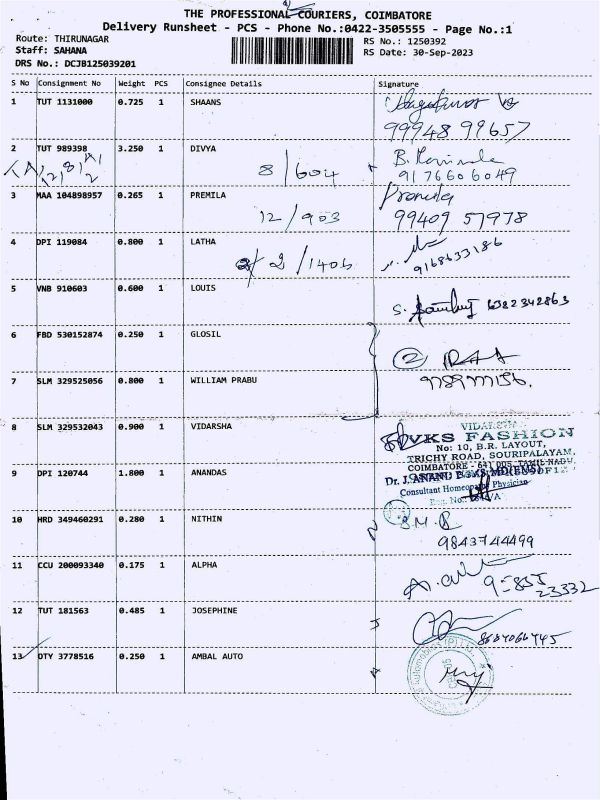 THE PROFESSIONAL COURIERS, COIMBATORE
Delivery Runsheet - PCS - Phone No.:0422-3505555 - Page No.:1
Route: THIRUNAGAR
RS No.: 1250392
Staff: SAHANA
RS Date: 30-Sep-2023
DRS No.: DCJB125039201
S No Consignment No Weight PCS Consignee Details Signature
1 TUT 1131000 0.725 1 SHAANS
99948 99657
2 TUT 989398 3.250 1 DIVYA
8/604
9176606049
3 MAA 104898957 0.265 1 PREMILA
12/903
99409 57978
4 DPI 119084 0.800 1 LATHA
2/1406
9168633186
5 VNB 910603 0.600 1 LOUIS
S. 6382342863
6 FBD 530152874 0.250 1 GLOSIL
2
7 SLM 329525056 0.800 1 WILLIAM PRABU
8 SLM 329532043 0.900 1 VIDARSHA
VIDARSHA
VKS FASHION
No: 10, B.R. LAYOUT,
TRICHY ROAD, SOURIPALAYAM,
COIMBATORE - 641 005, TAMIL NADU,
9 DPI 120744 1.800 1 ANANDAS
Dr. J. ANAND
Consultant Homeopathy Physician
10 HRD 349460291 0.280 1 NITHIN
9843744499
11 CCU 200093340 0.175 1 ALPHA
23332
12 TUT 181563 0.485 1 JOSEPHINE
8684066745
13 OTY 3778516 0.250 1 AMBAL AUTO